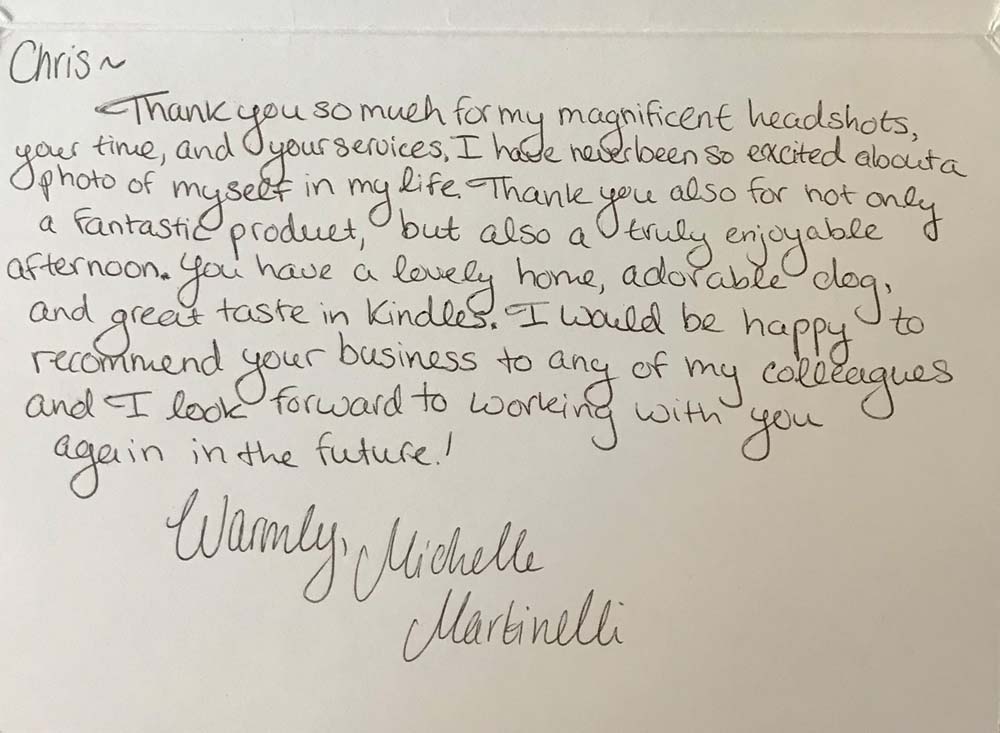 Chris ~
Thank you so much for my magnificent headshots,
your time, and your services. I have never been so excited about a
photo of myself in my life. Thank you also for not only
a fantastic product, but also a truly enjoyable
afternoon. You have a lovely home, adorable dog,
and great taste in Kindles. I would be happy to
recommend your business to any of my colleagues
and I look forward to working with you
again in the future!
Warmly, Michelle
Martinelli